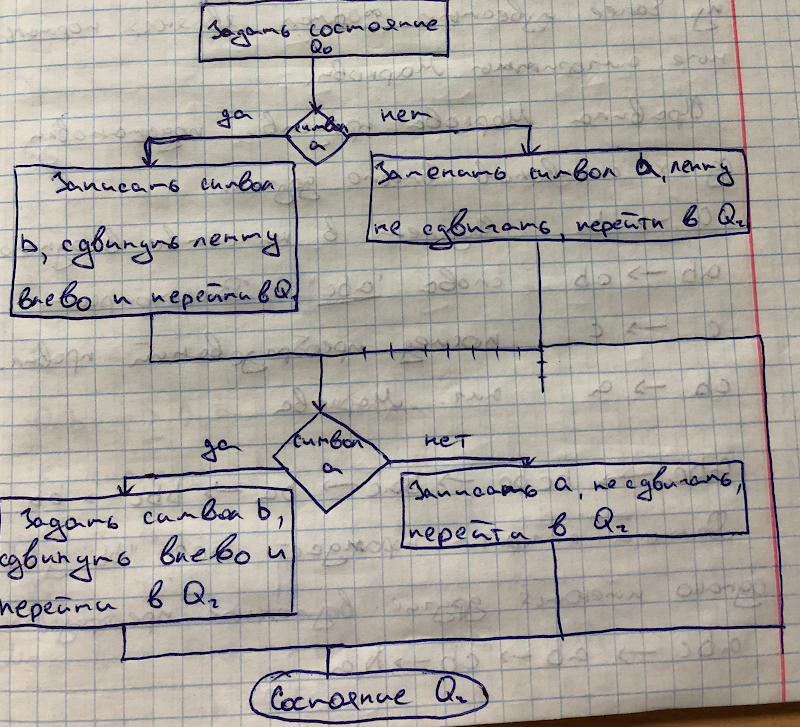 Задать состояние
Q₀
да
символ
a
нет
Записать символ
b, сдвинуть ленту
влево и перейти в Q₁
Записать символ a, ленту
не сдвигать, перейти в Q₂
да
символ
a
нет
Задать символ b,
сдвинуть влево и
перейти в Q₂
Записать a, не сдвигать,
перейти в Q₂
Состояние Q₂